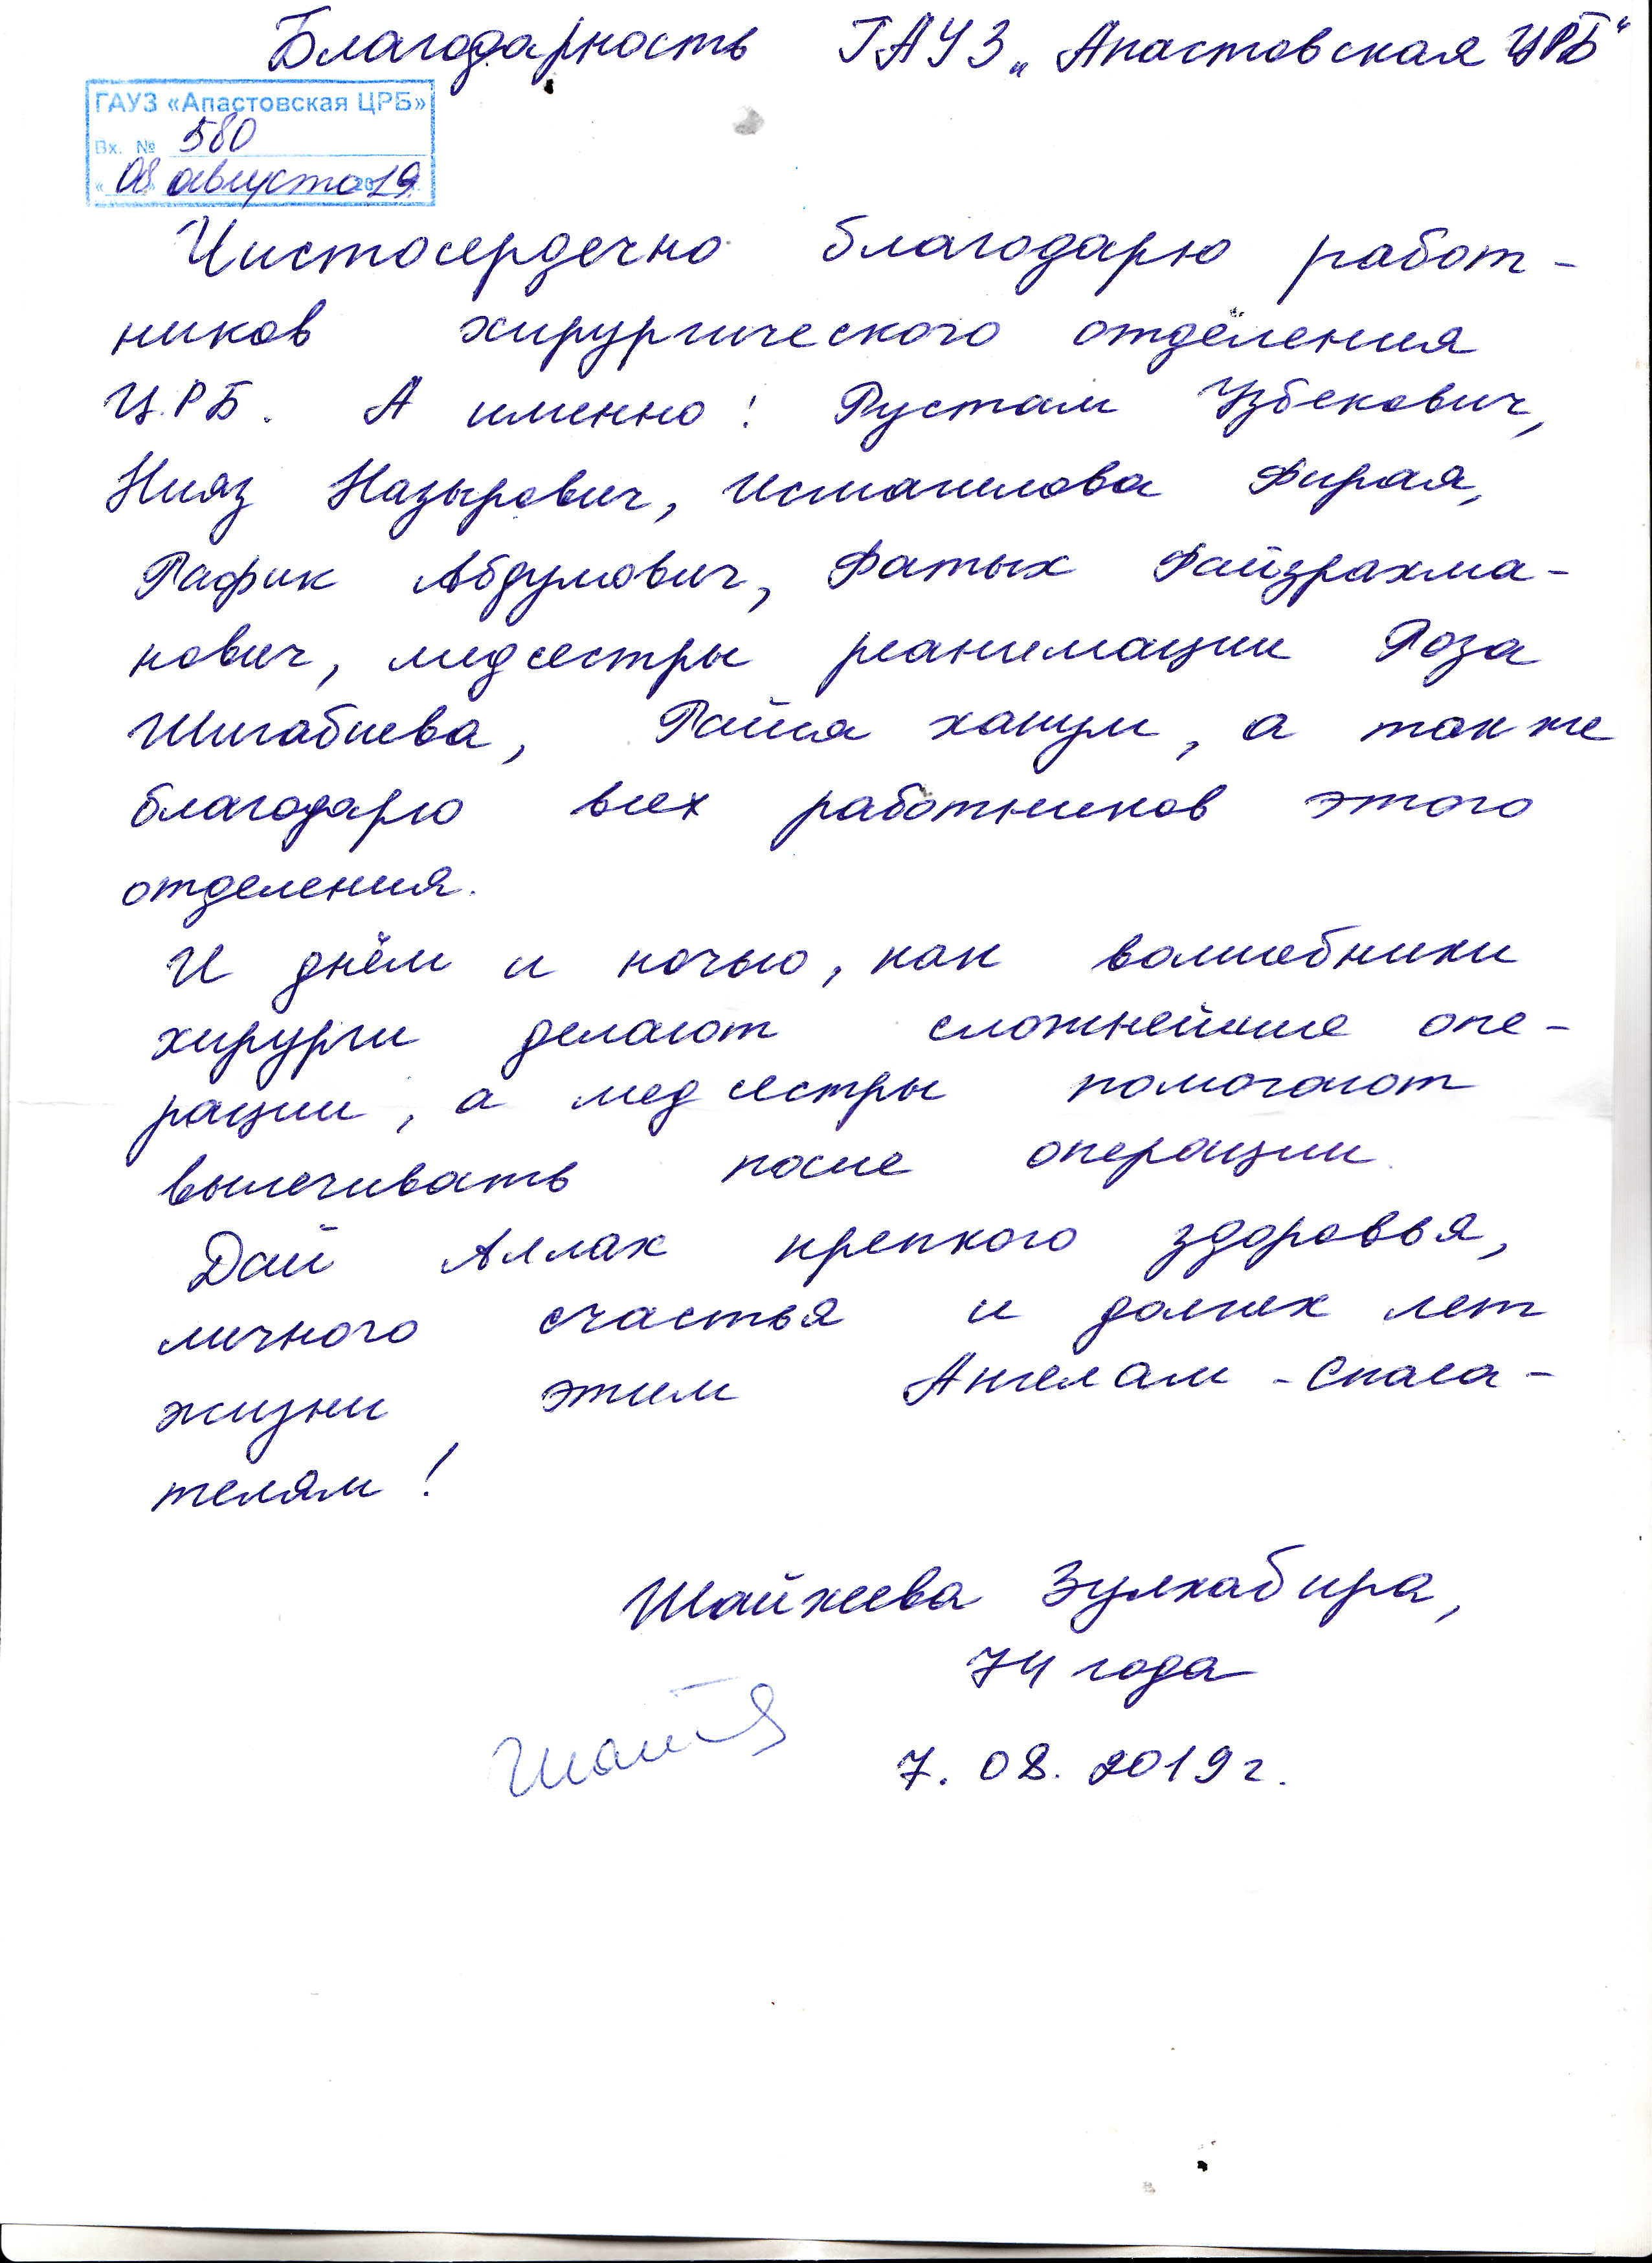 Благодарность ГАУЗ „Апастовская ЦРБ“
ГАУЗ «Апастовская ЦРБ»
Вх. № 580
«08» августа 2019 г.
Чистосердечно благодарю работ-
ников хирургического отделения
ЦРБ. А именно: Рустам Узбекович,
Нияз Назырович, Исмагилова Фирая,
Рафик Абдулович, Фатых Файзрахма-
нович, медсестры реанимации Роза
Шигабиева, Райса ханум, а также
благодарю всех работников этого
отделения.
И днём и ночью, как волшебники
хирурги делают сложнейшие опе-
рации, а мед сестры помогают
вылечивать после операции.
Дай Аллах крепкого здоровья,
личного счастья и долгих лет
жизни этим Ангелам-спаса-
телям!
Шайхеева Зулхабира,
74 года
7.08.2019г.